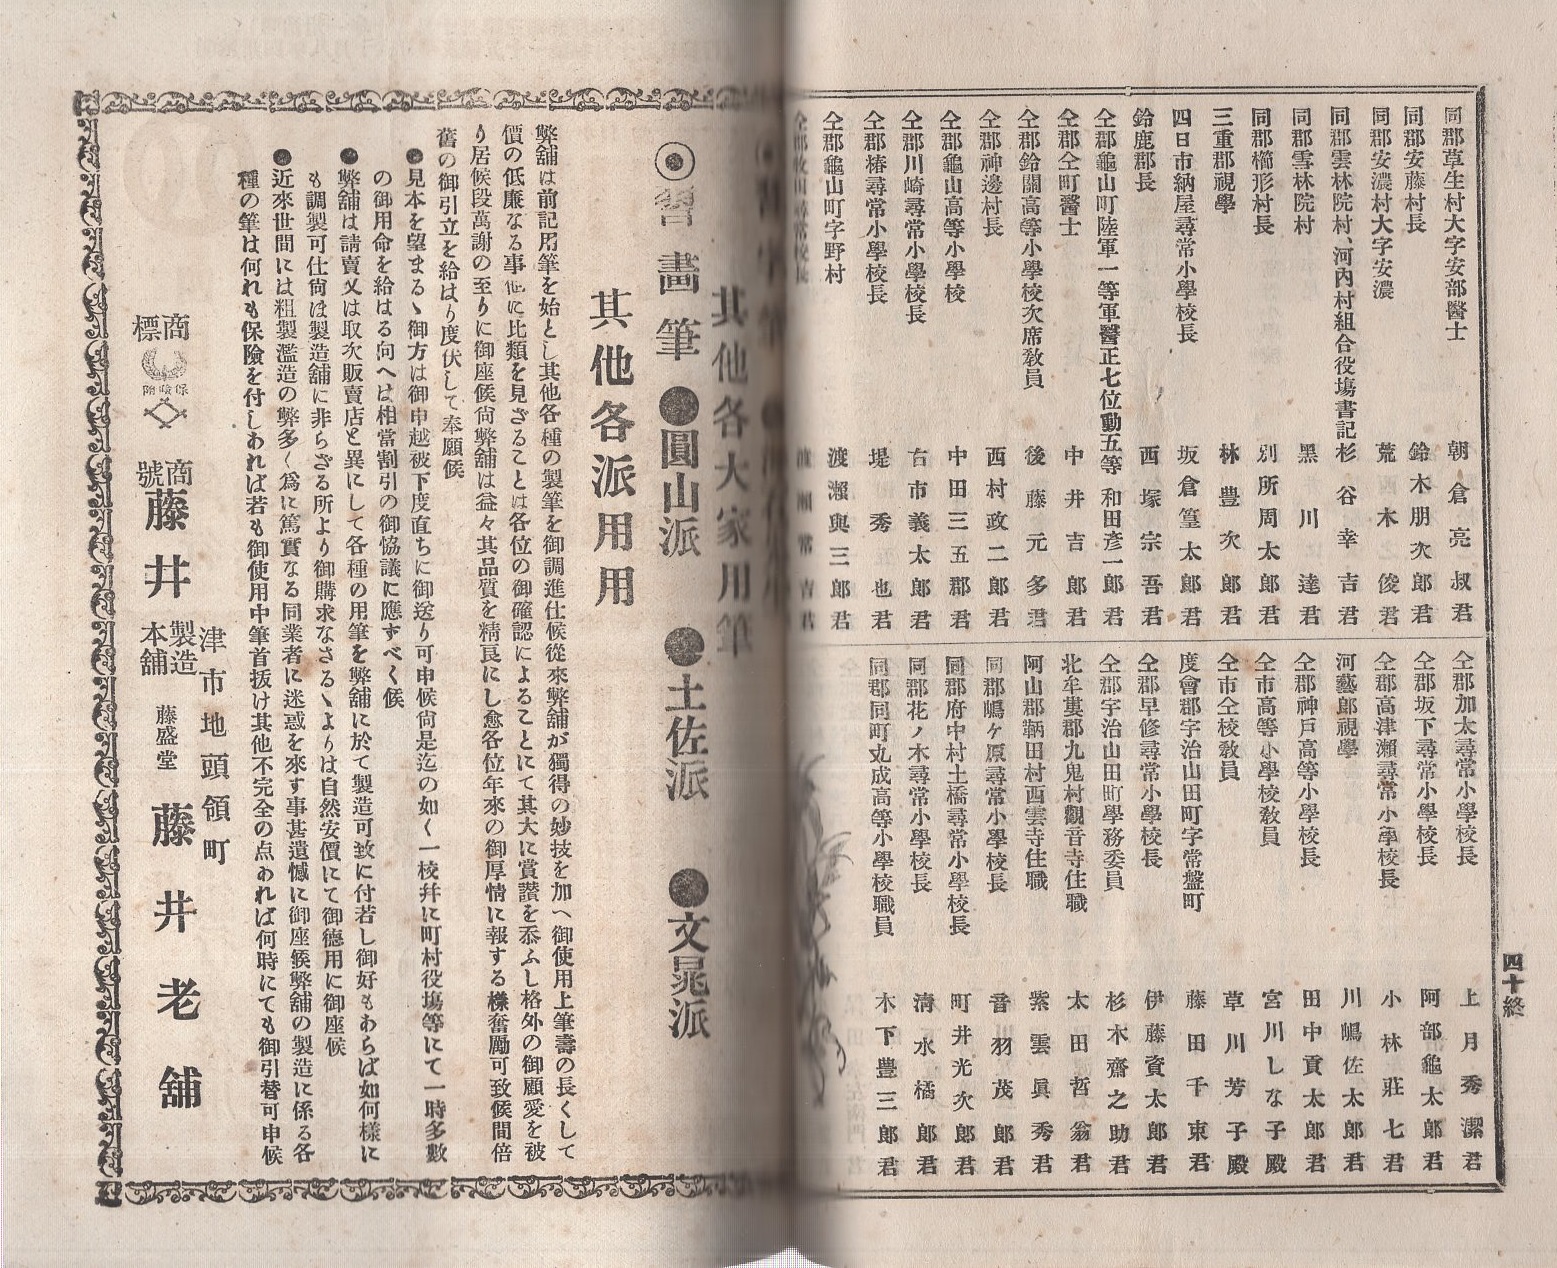 四十終
同郡草生村大字安部醫士 朝倉亮叔君
同郡安藤村長 鈴木朋次郎君
同郡安濃村大字安濃 荒木俊君
同郡雲林院村、河內村組合役塲書記 杉谷幸吉君
同郡雪林院村 黑川達君
同郡櫛形村長 別所周太郎君
三重郡視學 林豊次郎君
四日市納屋尋常小學校長 坂倉篁太郎君
鈴鹿郡長 西塚宗吾君
仝郡龜山町陸軍一等軍醫正七位勳五等 和田彥一郎君
仝郡仝町醫士 中井吉郎君
仝郡鈴關高等小學校次席敎員 後藤元多君
仝郡神邊村長 西村政二郎君
仝郡龜山高等小學校 中田三五郡君
仝郡川崎尋常小學校長 古市義太郎君
仝郡椿尋常小學校長 堤秀也君
仝郡龜山町字野村 渡瀨與三郎君
仝郡加太尋常小學校長 上月秀潔君
仝郡坂下尋常小學校長 阿部龜太郎君
仝郡高津瀨尋常小學校長 小林莊七君
河藝郎視學 川嶋佐太郎君
仝郡神戶高等小學校長 田中貢太郎君
仝市高等小學校敎員 宮川しな子殿
仝市仝校敎員 草川芳子殿
度會郡宇治山田町字常盤町 藤田千東君
仝郡早修尋常小學校長 伊藤資太郎君
仝郡宇治山田町學務委員 杉木齋之助君
北牟婁郡九鬼村觀音寺住職 太田哲翁君
阿山郡鞆田村西雲寺住職 紫雲眞秀君
同郡嶋ヶ原尋常小學校長 音羽茂郎君
同郡府中村土橋尋常小學校長 町井光次郎君
同郡花ノ木尋常小學校長 淸水橘郎君
同郡同町丸成高等小學校職員 木下豊三郎君
其他各大家用筆
◎習畫筆 ●圓山派 ●土佐派 ●文晁派
其他各派用用
弊舖は前記用筆を始とし其他各種の製筆を御調進仕候從來弊舖が獨得の妙技を加へ御使用上筆壽の長くして
價の低廉なる事他に比類を見ざることは各位の御確認によることにて其大に賞讃を忝ふし格外の御顧愛を被
り居候段萬謝の至りに御座候尙弊舖は益々其品質を精良にし愈各位年來の御厚情に報する樣奮勵可致候間倍
舊の御引立を給はり度伏して奉願候
●見本を望まるゝ御方は御申越被下度直ちに御送り可申候尙是迄の如く一校幷に町村役塲等にて一時多數
の御用命を給はる向へは相當割引の御協議に應すべく候
●弊舖は請賣又は取次販賣店と異にして各種の用筆を弊舖に於て製造可致に付若し御好もあらば如何樣に
も調製可仕尙は製造舖に非らざる所より御購求なさるゝよりは自然安價にて御德用に御座候
●近來世間には粗製濫造の弊多く爲に篤實なる同業者に迷惑を來す事甚遺憾に御座候弊舖の製造に係る各
種の筆は何れも保險を付しあれば若も御使用中筆首拔け其他不完全の点あれば何時にても御引替可申候
津市地頭領町
商標 保險附 商號 藤井 製造本舖 藤盛堂 藤井老舖